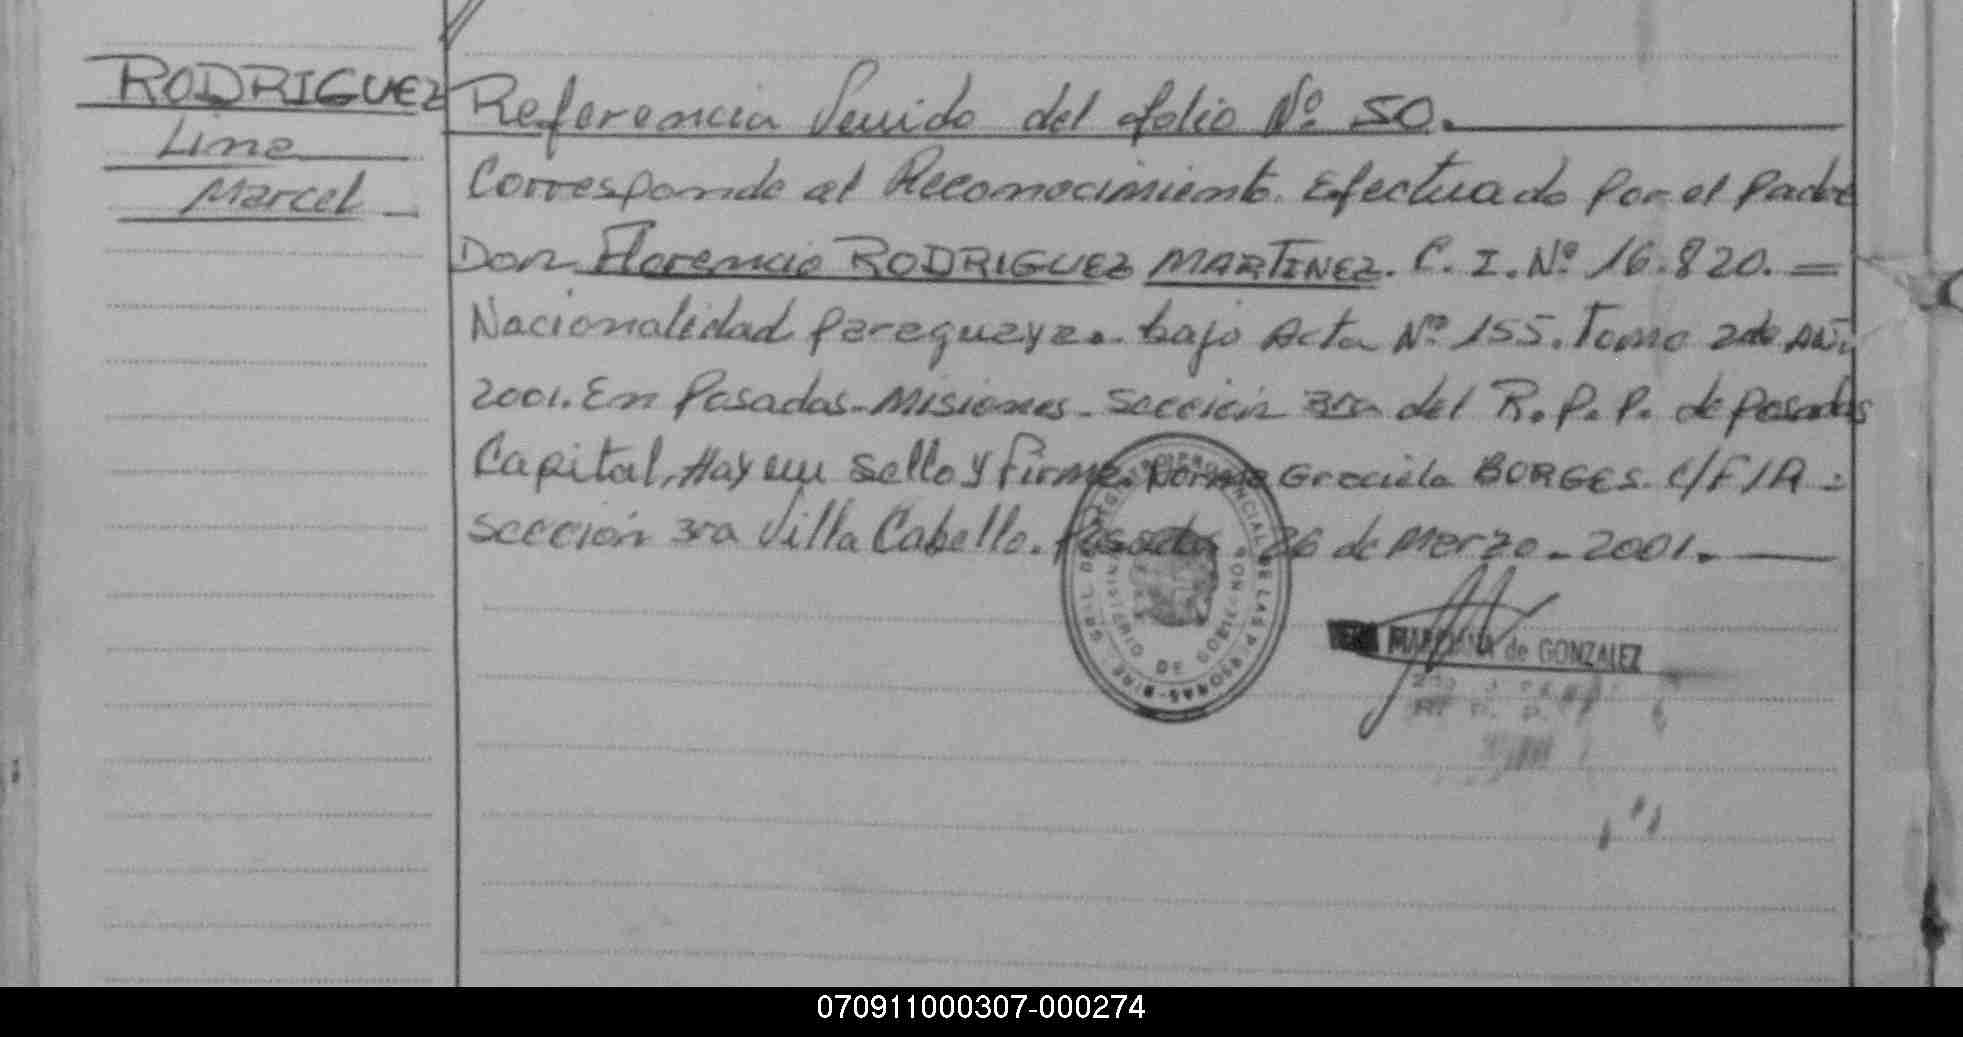 RODRIGUEZ
Lina
Marcel
Referencia Venido del folio Nº 50.
Corresponde al Reconocimiento. Efectuado por el padre
Don Florencio RODRIGUEZ MARTINEZ. C. I. Nº 16.820. =
Nacionalidad paraguaya. bajo Acta Nº 155. Tomo 2do Año
2001. En Posadas-Misiones-Sección 3ra del R. P. P. de Posadas
Capital. Hay un sello y firma. Norma Graciela BORGES. C/F/R =
Sección 3ra Villa Cabello. Posadas 26 de Marzo - 2001.
MARCIANA de GONZALEZ
070911000307-000274